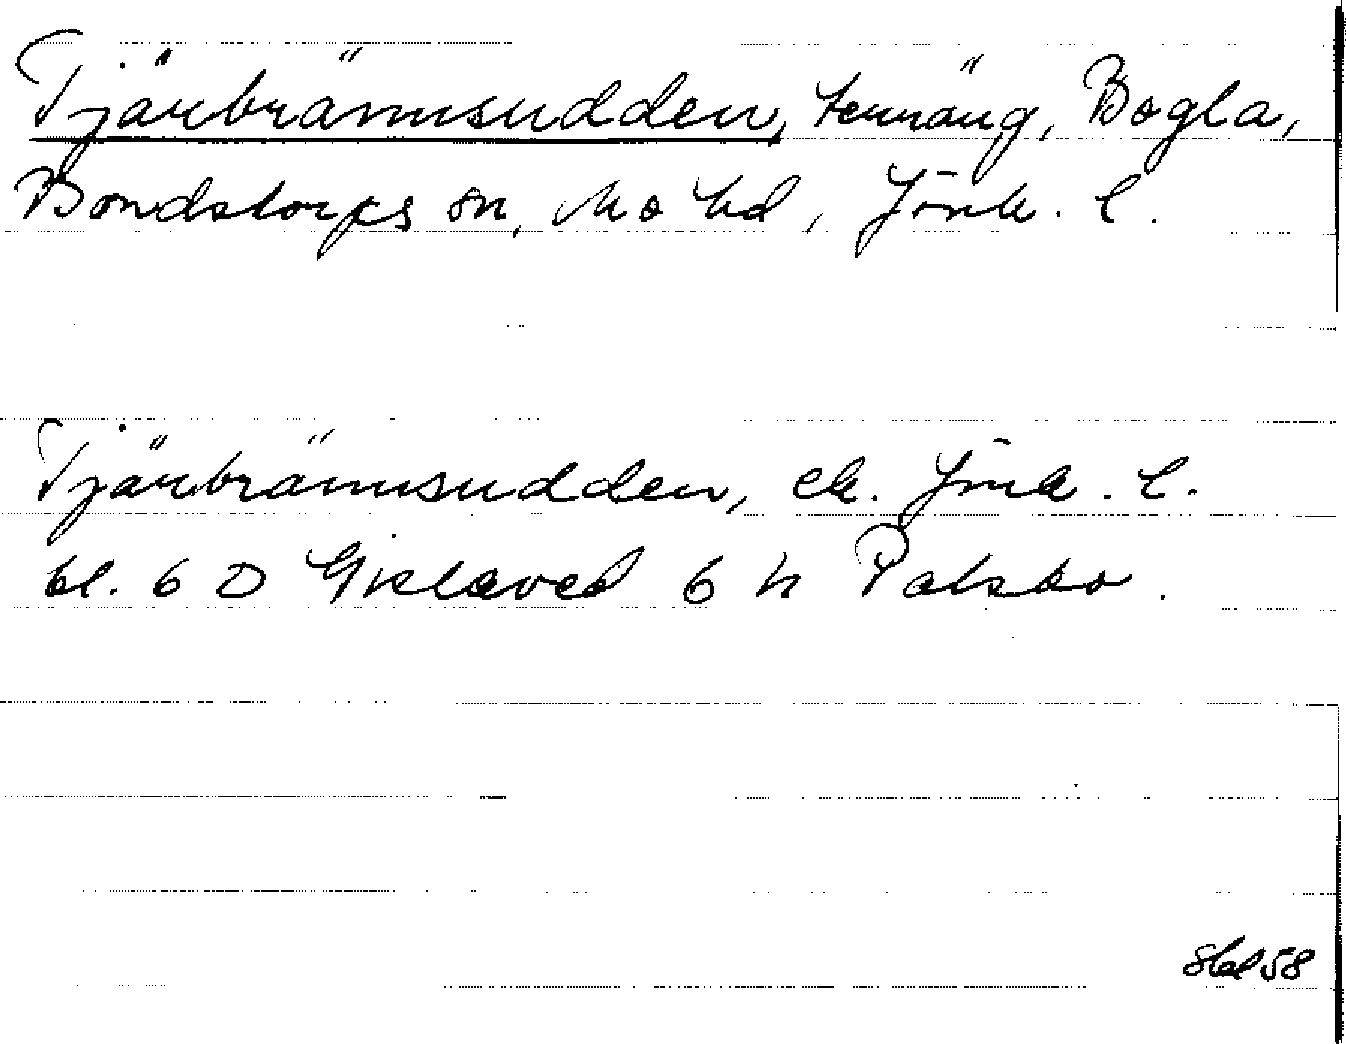 Tjärbrännsudden, terräng, Bogla,
Bondstorps sn, Mo hd, Jönk. l.
Tjärbrännsudden, ek. Jönk. l.
bl. 6 D Gislaved 6 h Palsbo.
58